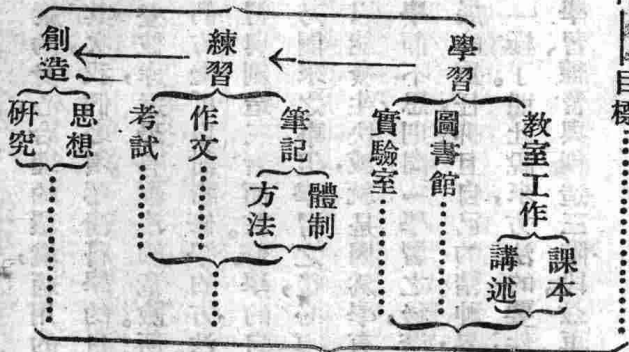 目標
學習
教室工作
課本
講述
圖書館
實驗室
練習
筆記
體制
方法
作文
考試
創造
思想
研究